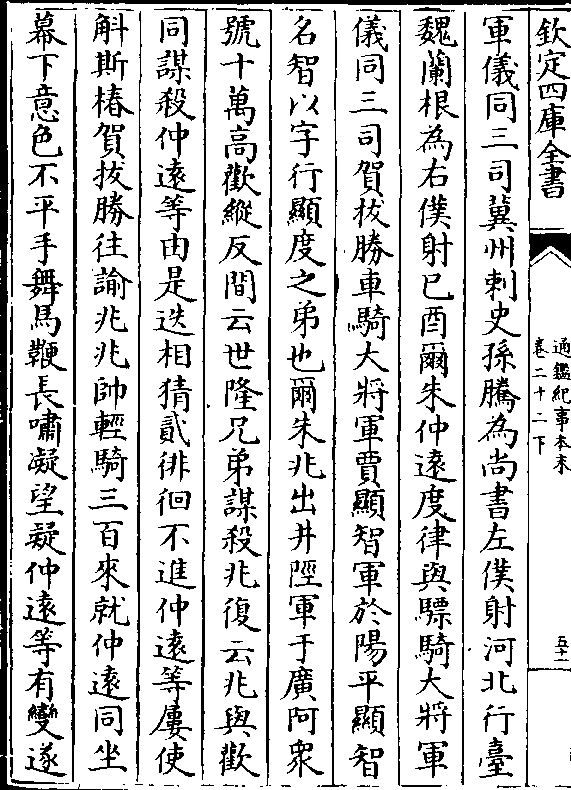 欽定四庫全書
通鑑紀事本末
卷二十二下
五十一
軍儀同三司冀州刺史孫騰為尚書左僕射河北行臺
魏蘭根為右僕射已酉爾朱仲遠度律與驃騎大將軍
儀同三司賀拔勝車騎大將軍賈顯智軍於陽平顯智
名智以字行顯度之弟也爾朱兆出井陘軍于廣阿衆
號十萬高歡縱反間云世隆兄弟謀殺兆復云兆與歡
同謀殺仲遠等由是迭相猜貳徘徊不進仲遠等屢使
斛斯椿賀拔勝往諭兆兆帥輕騎三百來就仲遠同坐
幕下意色不平手舞馬鞭長嘯凝望疑仲遠等有變遂